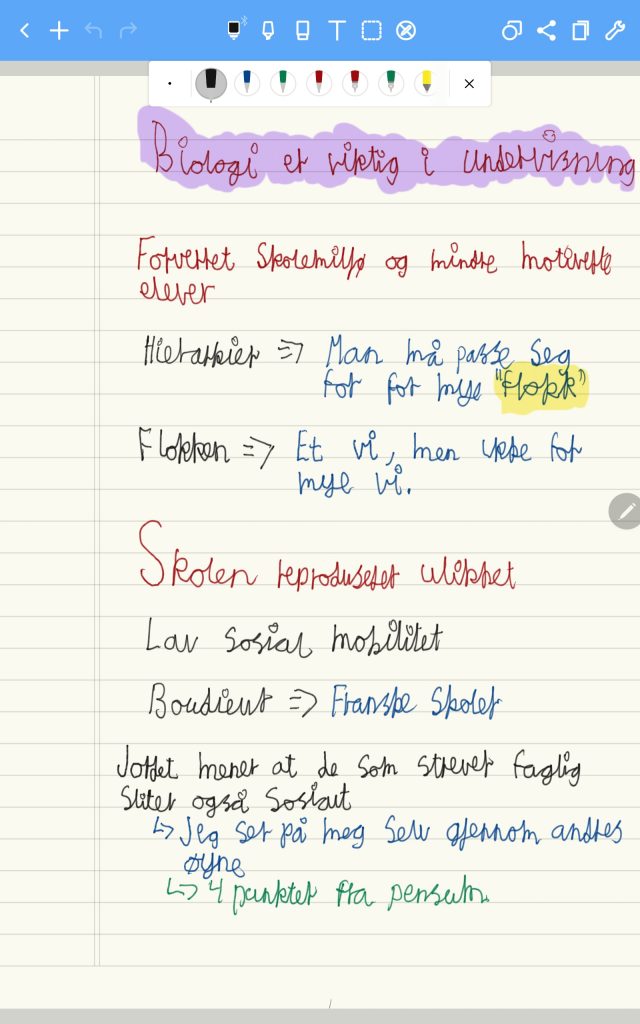 Biologi er viktig i undervisning
Forverret skolemiljø og mindre motiverte
elever
Hierarkier => Man må passe seg
for for mye "flokk"
Flokken => Et vi, men ikke for
mye vi.
Skolen reproduserer ulikhet
Lav sosial mobilitet
Boudieut => Franske skoler
mener at de som strever faglig
sliter også sosialt
↳ Jeg ser på meg selv gjennom andres
øyne
↳ 4 punkter fra pensum.